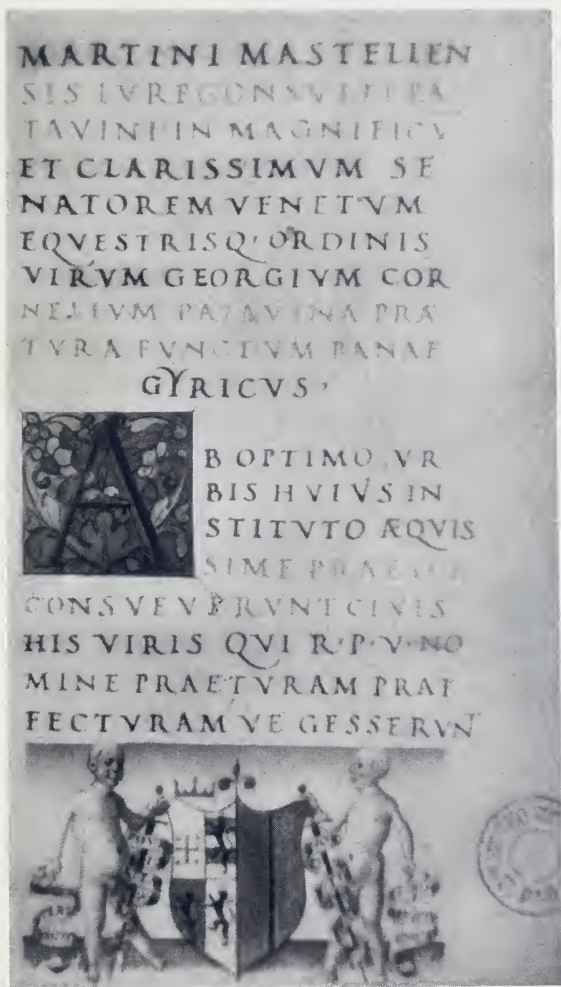 MARTINI MASTELLEN
SIS IVRECONSVLTI PA
TAVINI IN MAGNIFICV
ET CLARISSIMVM SE
NATOREM VENETVM
EQVESTRISQ' ORDINIS
VIRVM GEORGIVM COR
NELIVM PATAVINA PRÆ
TVRA FVNCTVM PANAE
GYRICVS,
AB OPTIMO VR
BIS HVIVS IN
STITVTO ÆQVIS
SIME
CONSVEVERVNT CIVES
HIS VIRIS QVI R·P·V·NO
MINE PRAETVRAM PRAE
FECTVRAM VE GESSERVNT